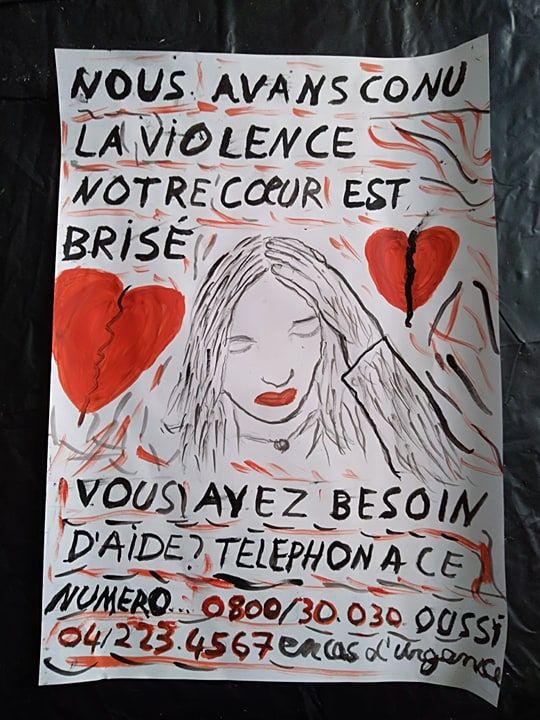 NOUS AVANS CONU
LA ViOLENCE
NOTRE CŒUR EST
BRISÉ
VOUS AVEZ BESOIN
D'AIDE? TELEPHON A CE
NUMERO... 0800/30.030 OUSSi
04/223.4567 en cas d'urgence